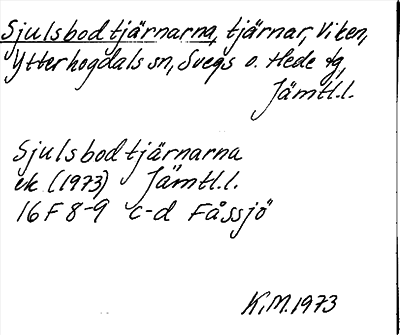 Sjulsbodtjärnarna, tjärnar, Viken,
Ytterhogdals sn, Svegs o. Hede tg,
Jämtl.l.
Sjulsbodtjärnarna
ek (1973) Jämtl.l.
16 F 8-9 c-d Fåssjö
K.M. 1973